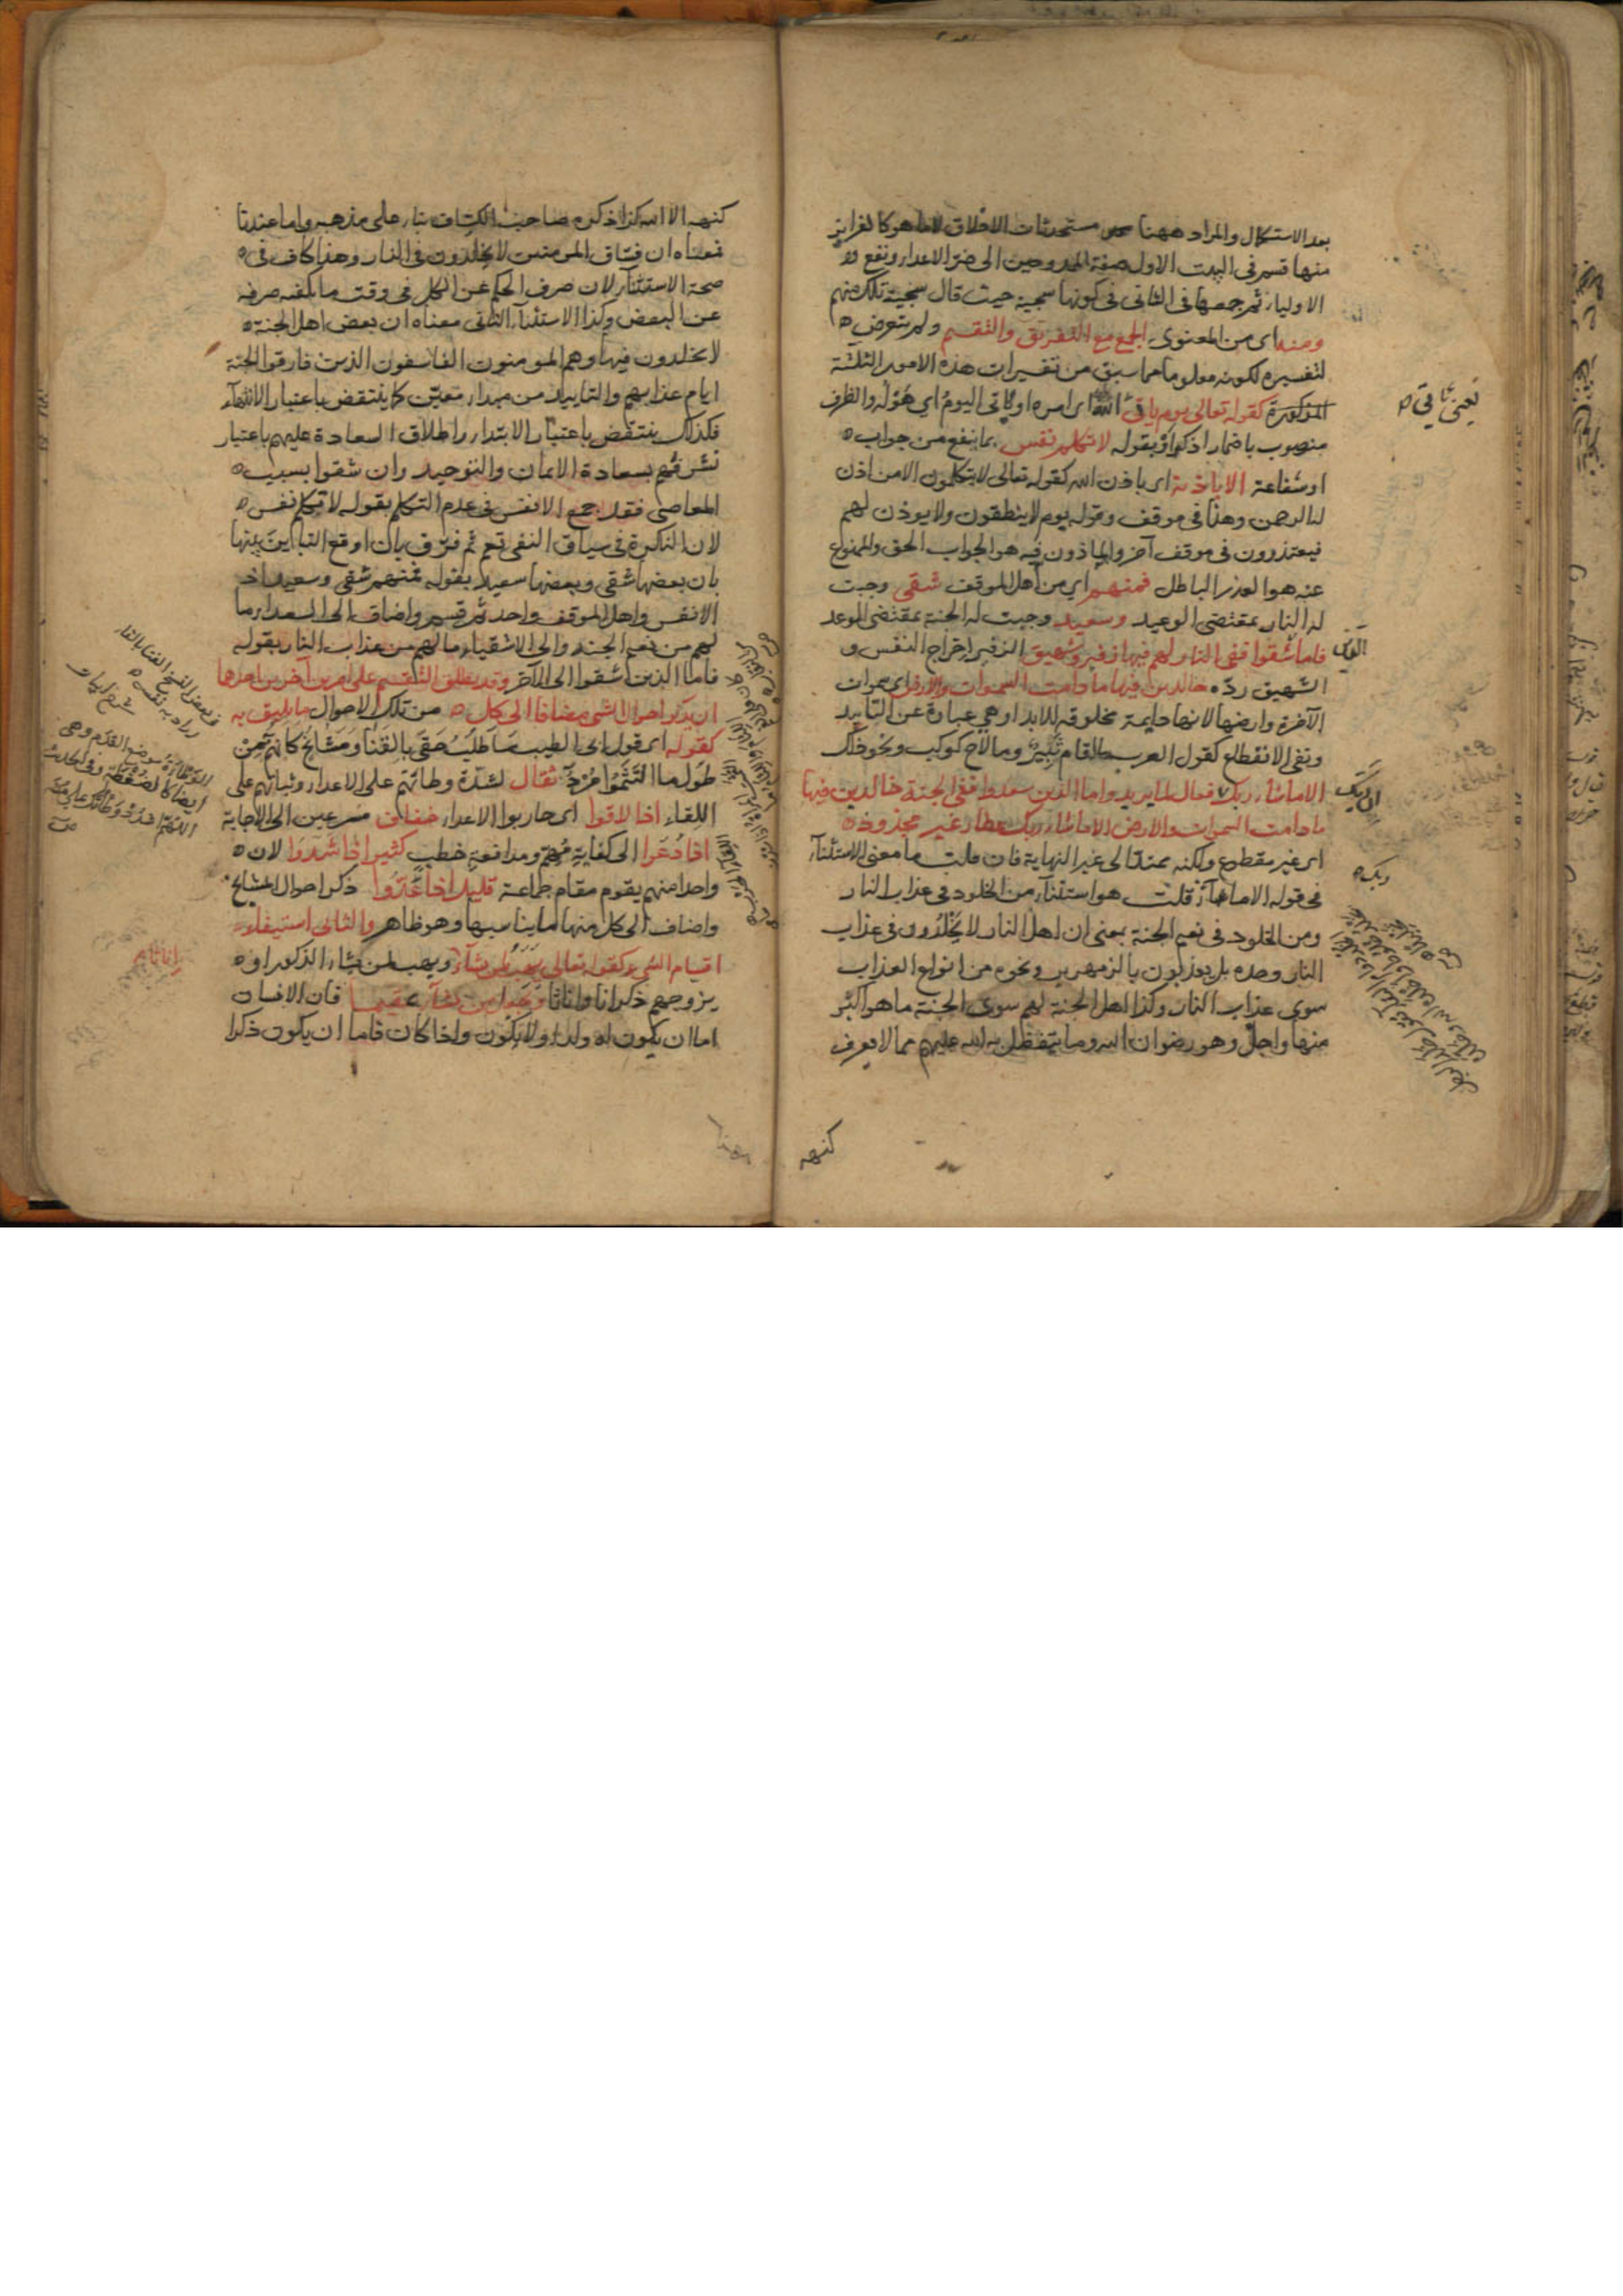 بعد الاستكمال والمراد ههنا مستحدثات الاخلاق لا ما هو كالغرايز
منها قسم فى البيت الاول صفة الممدوحين الى ضر الاعداء ونفع
الاولياء ثم جمعها فى الثانى فى كونها سجية حيث قال سجية تلك منهم
ومنه اى من المعنوى الجمع مع التفريق والتقسيم ولم يتعرض
لتفسيره لكونه معلوما مما سبق من تفسيرات هذه الامور الثلثة
المذكورة كقوله تعالى يوم ياتى الله اى امره او ياتى اليوم اى هوله والظرف
منصوب باضمار اذكر او بقوله لا تكلم نفس بما ينفع من جواب
او شفاعة الا باذنه اى باذن الله كقوله تعالى لا يتكلمون الا من اذن
له الرحمن وهذا فى موقف وقوله يوم لا ينطقون ولا يوذن لهم
فيعتذرون فى موقف آخر والماذون فيه هو الجواب الحق والممنوع
عنه هو العذر الباطل فمنهم اي من اهل الموقف شقى وجبت
له النار بمقتضى الوعيد وسعيد وجبت له الجنة بمقتضى الوعد
فاما شقوا ففى النار لهم فيها زفير وشهيق الزفير اخراج النفس و
الشهيق رده خالدين فيها ما دامت السموات والارض اى سموات
الآخرة وارضها لانها دايمة مخلوقه للابد او هي عبارة عن التأبيد
ونفى الانقطاع كقول العرب ما اقام ثبير وما لاح كوكب ونحو ذلك
الا ما شاء ربك فعال لما يريد واما الذين سعدوا ففى الجنة خالدين فيها
ما دامت السموات والارض الا ما شاء ربك عطاء غير مجذوذ
اى غير مقطوع ولكنه ممتد الى غير النهاية فان قلت ما معنى الاستثناء
فى قوله الا ما شاء قلت هو استثناء من الخلود فى عذاب النار
ومن الخلود فى نعيم الجنة بمعنى ان اهل النار لا يخلدون فى عذاب
النار وحده بل يعذبون بالزمهرير ونحوه من انواع العذاب
سوى عذاب النار وكذا اهل الجنة لهم سوى الجنة ما هو اكبر
منها واجل وهو رضوان الله وما يتفضل به الله عليهم مما لا يعرف
كنهه
ربك
كنهه الا الله كذا ذكره صاحب الكشاف بناء على مذهبه واما عندنا
فمعناه ان فساق المومنين لا يخلدون فى النار وهذا كاف فى
صحة الاستثناء لان صرف الحكم عن الكل فى وقت ما يكفيه صرفه
عن البعض وكذا الاستثناء الثانى معناه ان بعض اهل الجنة
لا يخلدون فيها وهم المومنون الفاسقون الذين فارقوا الجنة
ايام عذابهم والتابيد من مبداء معين كما ينتقض باعتبار الانتهاء
فكذلك ينتقض باعتبار الابتداء واطلاق السعادة عليهم باعتبار
تشرفهم بسعادة الايمان والتوحيد وان شقوا بسبب
المعاصى فقد جمع الانفس فى عدم التكلم بقوله لا تكلم نفس
لان النكرة فى سياق النفى تعم ثم فرق بان اوقع التباين بينها
بان بعضها شقى وبعضها سعيد بقوله فمنهم شقى وسعيد اذ
الانفس واهل الموقف واحد ثم قسم واضاف الى السعداء ما
لهم من نعيم الجنة والى الاشقياء ما لهم من عذاب النار بقوله
فاما الذين شقوا الى الآخر وقد يطلق التقسيم على امرين آخرين احدهما
ان يذكر احوال الشى مضافا الى كل من تلك الاحوال ما يليق به
كقوله اى قول ابى الطيب ساطلب حقى بالقنا ومشايخ كانهم من
طول ما التثموا مرد ثقال لشدة وطاتهم على الاعداء وثباتهم على
اللقاء اذا لاقوا اى حاربوا الاعداء خفاف مسرعين الى الاجابة
اذا دعوا الى كفاية مهم ومدافعة خطب كثير اذا شدوا لان
واحدا منهم يقوم مقام جماعة قليل اذا عدوا ذكر احوال المشايخ
واضاف الى كل منها ما يناسبها وهو ظاهر والثانى استيفاء
اقسام الشى كقوله تعالى يهب لمن يشاء ويهب لمن يشاء الذكور او
يزوجهم ذكرانا واناثا ويجعل من يشاء عقيما فان الانسان
اما ان يكون له ولد او لا يكون واذا كان فاما ان يكون ذكرا
اناثا